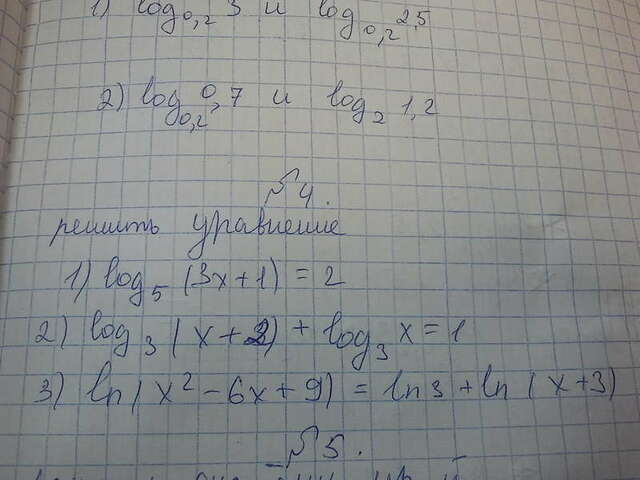 1) log₀,₂ 3 и log₀,₂ 2,5
2) log₀,₂ 0,7 и log₂ 1,2
№4.
решить уравнение
1) log₅ (3x+1) = 2
2) log₃ (x+2) + log₃ x = 1
3) ln (x² - 6x + 9) = ln 3 + ln (x+3)
№5.